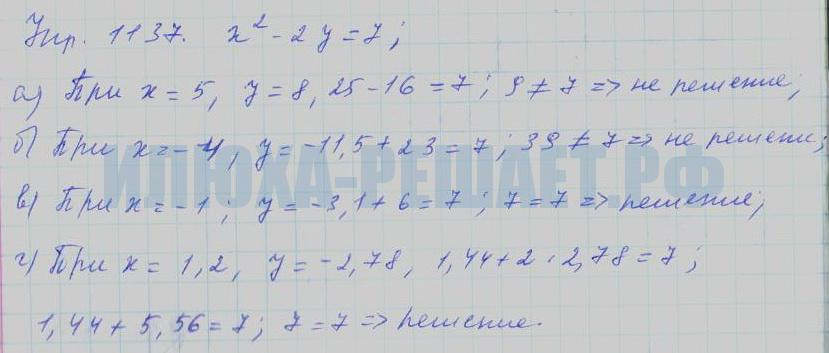 Упр. 1137. x² - 2y = 7;
а) При x = 5, y = 8, 25 - 16 = 7; 9 ≠ 7 => не решение;
б) При x = -4, y = -11,5 + 23 = 7; 39 ≠ 7 => не решени;
ИЛЮХА-РЕШАЕТ.РФ
в) При x = -1; y = -3, 1 + 6 = 7; 7 = 7 => решение;
г) При x = 1,2, y = -2,78, 1,44 + 2 · 2,78 = 7;
1,44 + 5,56 = 7; 7 = 7 => решение.